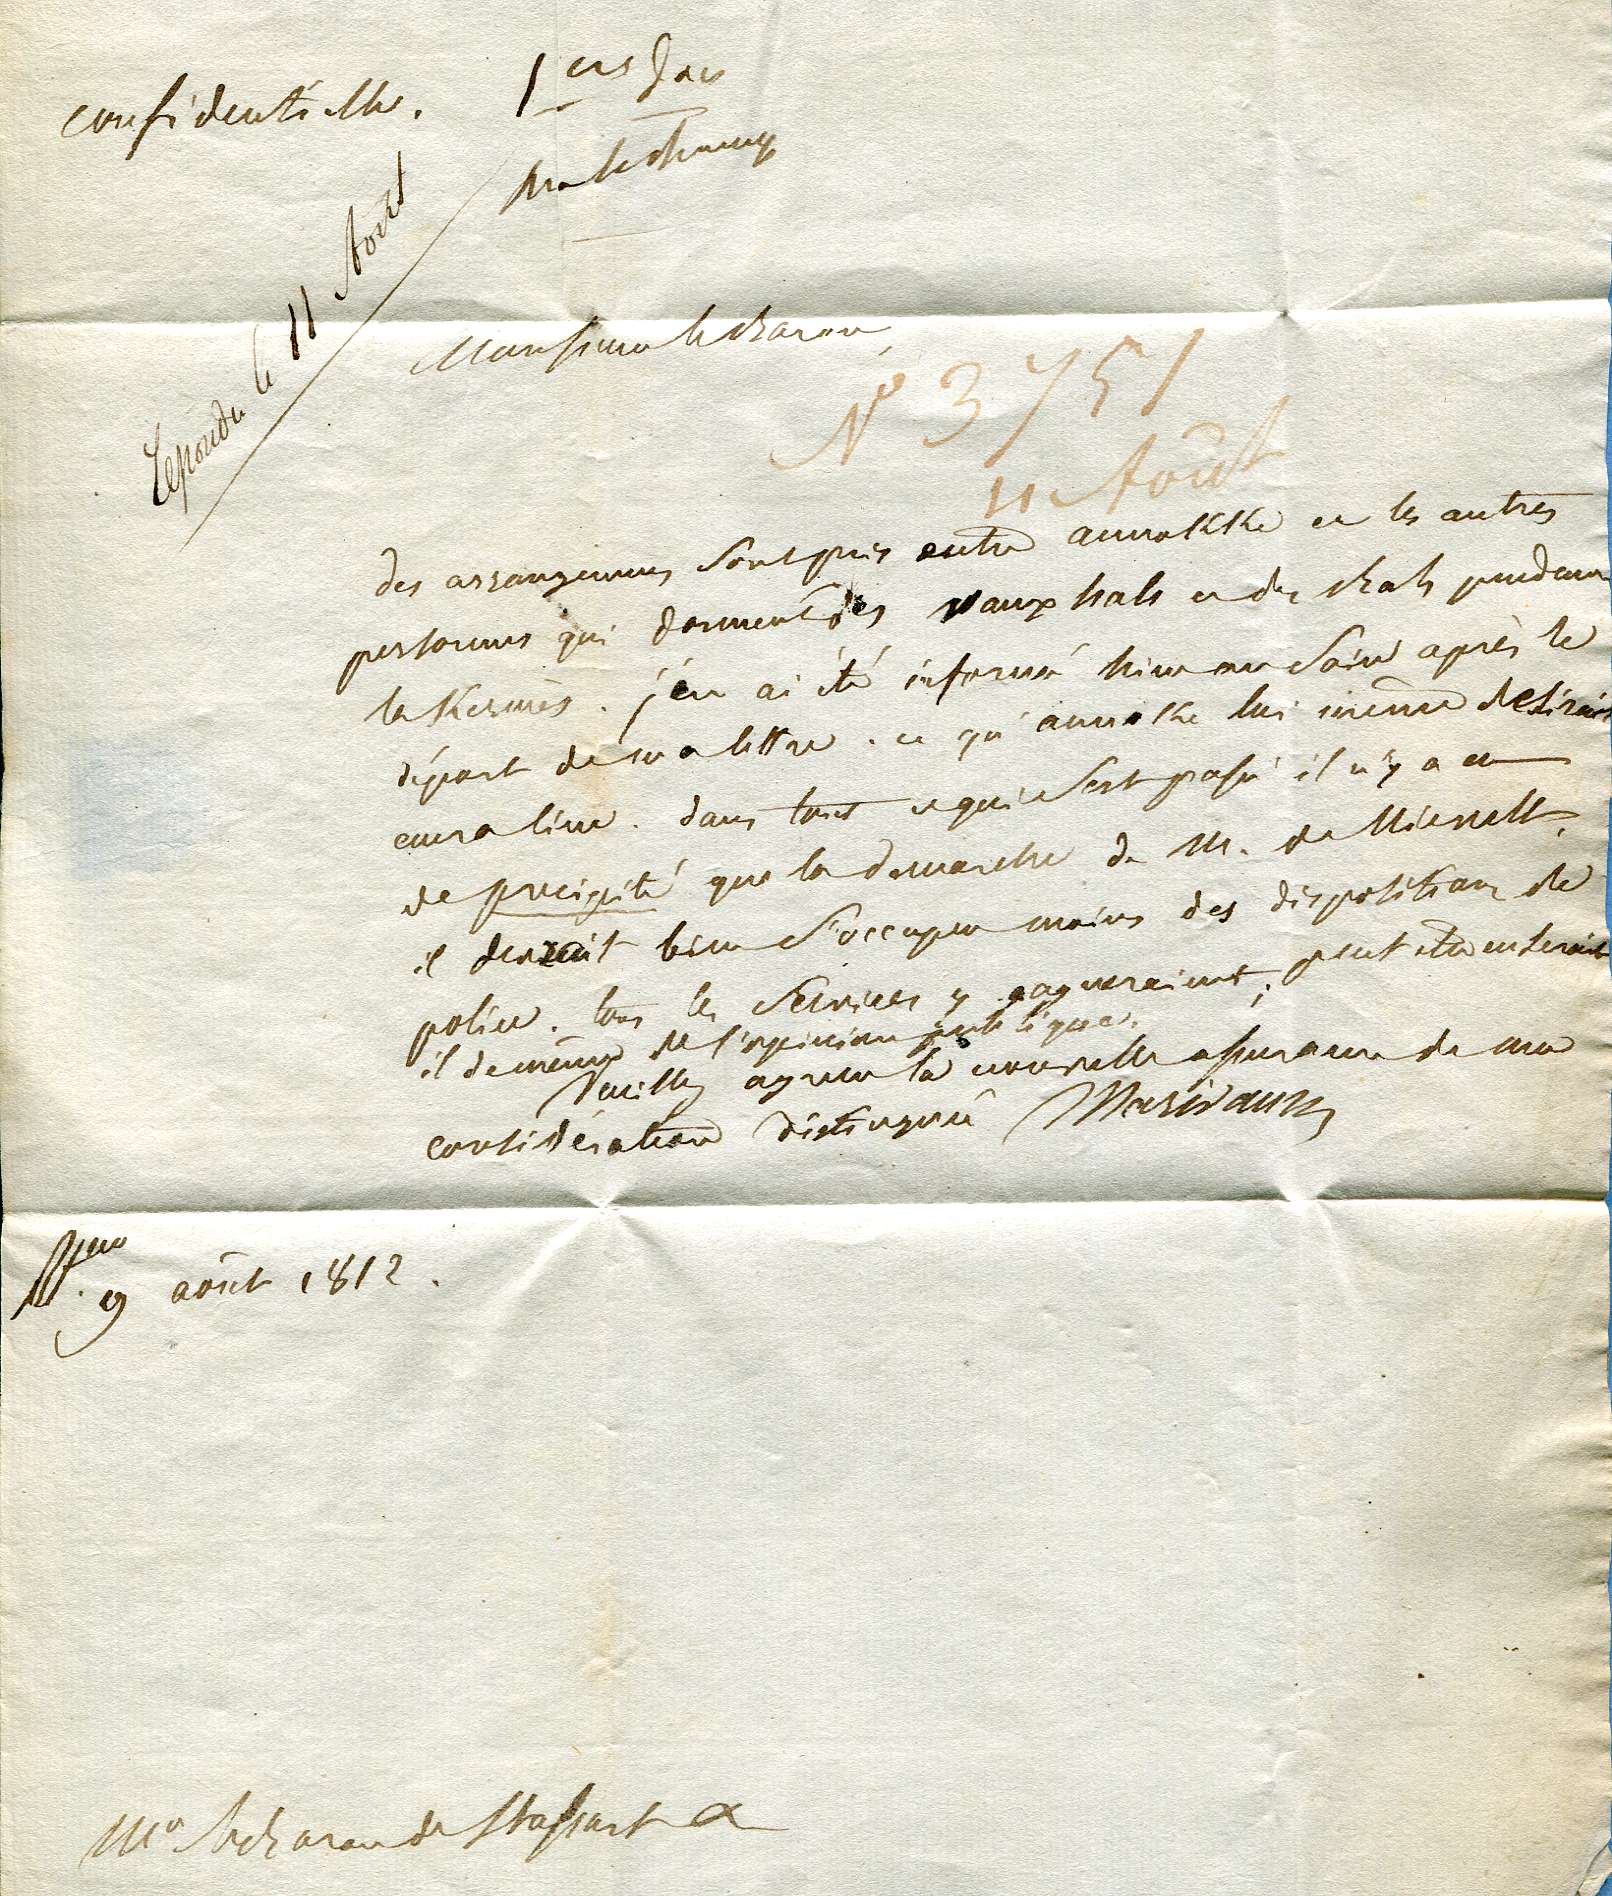 confidentielle.
1ers
Repondu le 11 Août
Monsieur le Baron,
N° 3751
11 Août
des arrangemens sont pris entre annokké et les autres
personnes qui donnent des vauxhals et des bals pendant
la Kermès. j'en ai été informé hier au soir après le
départ de ma lettre. ce qu'annokke lui même desirait
aura lieu. dans tout ce qui s'est passé il n'y a eu
de precipité que la demarche de M. de
il devrait bien s'occuper moins des dispositions de
police. tous les services y gagneraient; peut etre en serait
il de même de l'opinion publique.
Veuillez agreer la nouvelle assurance de ma
considération distinguée Marivault
9 août 1812.
Mr le Baron de Stassart &